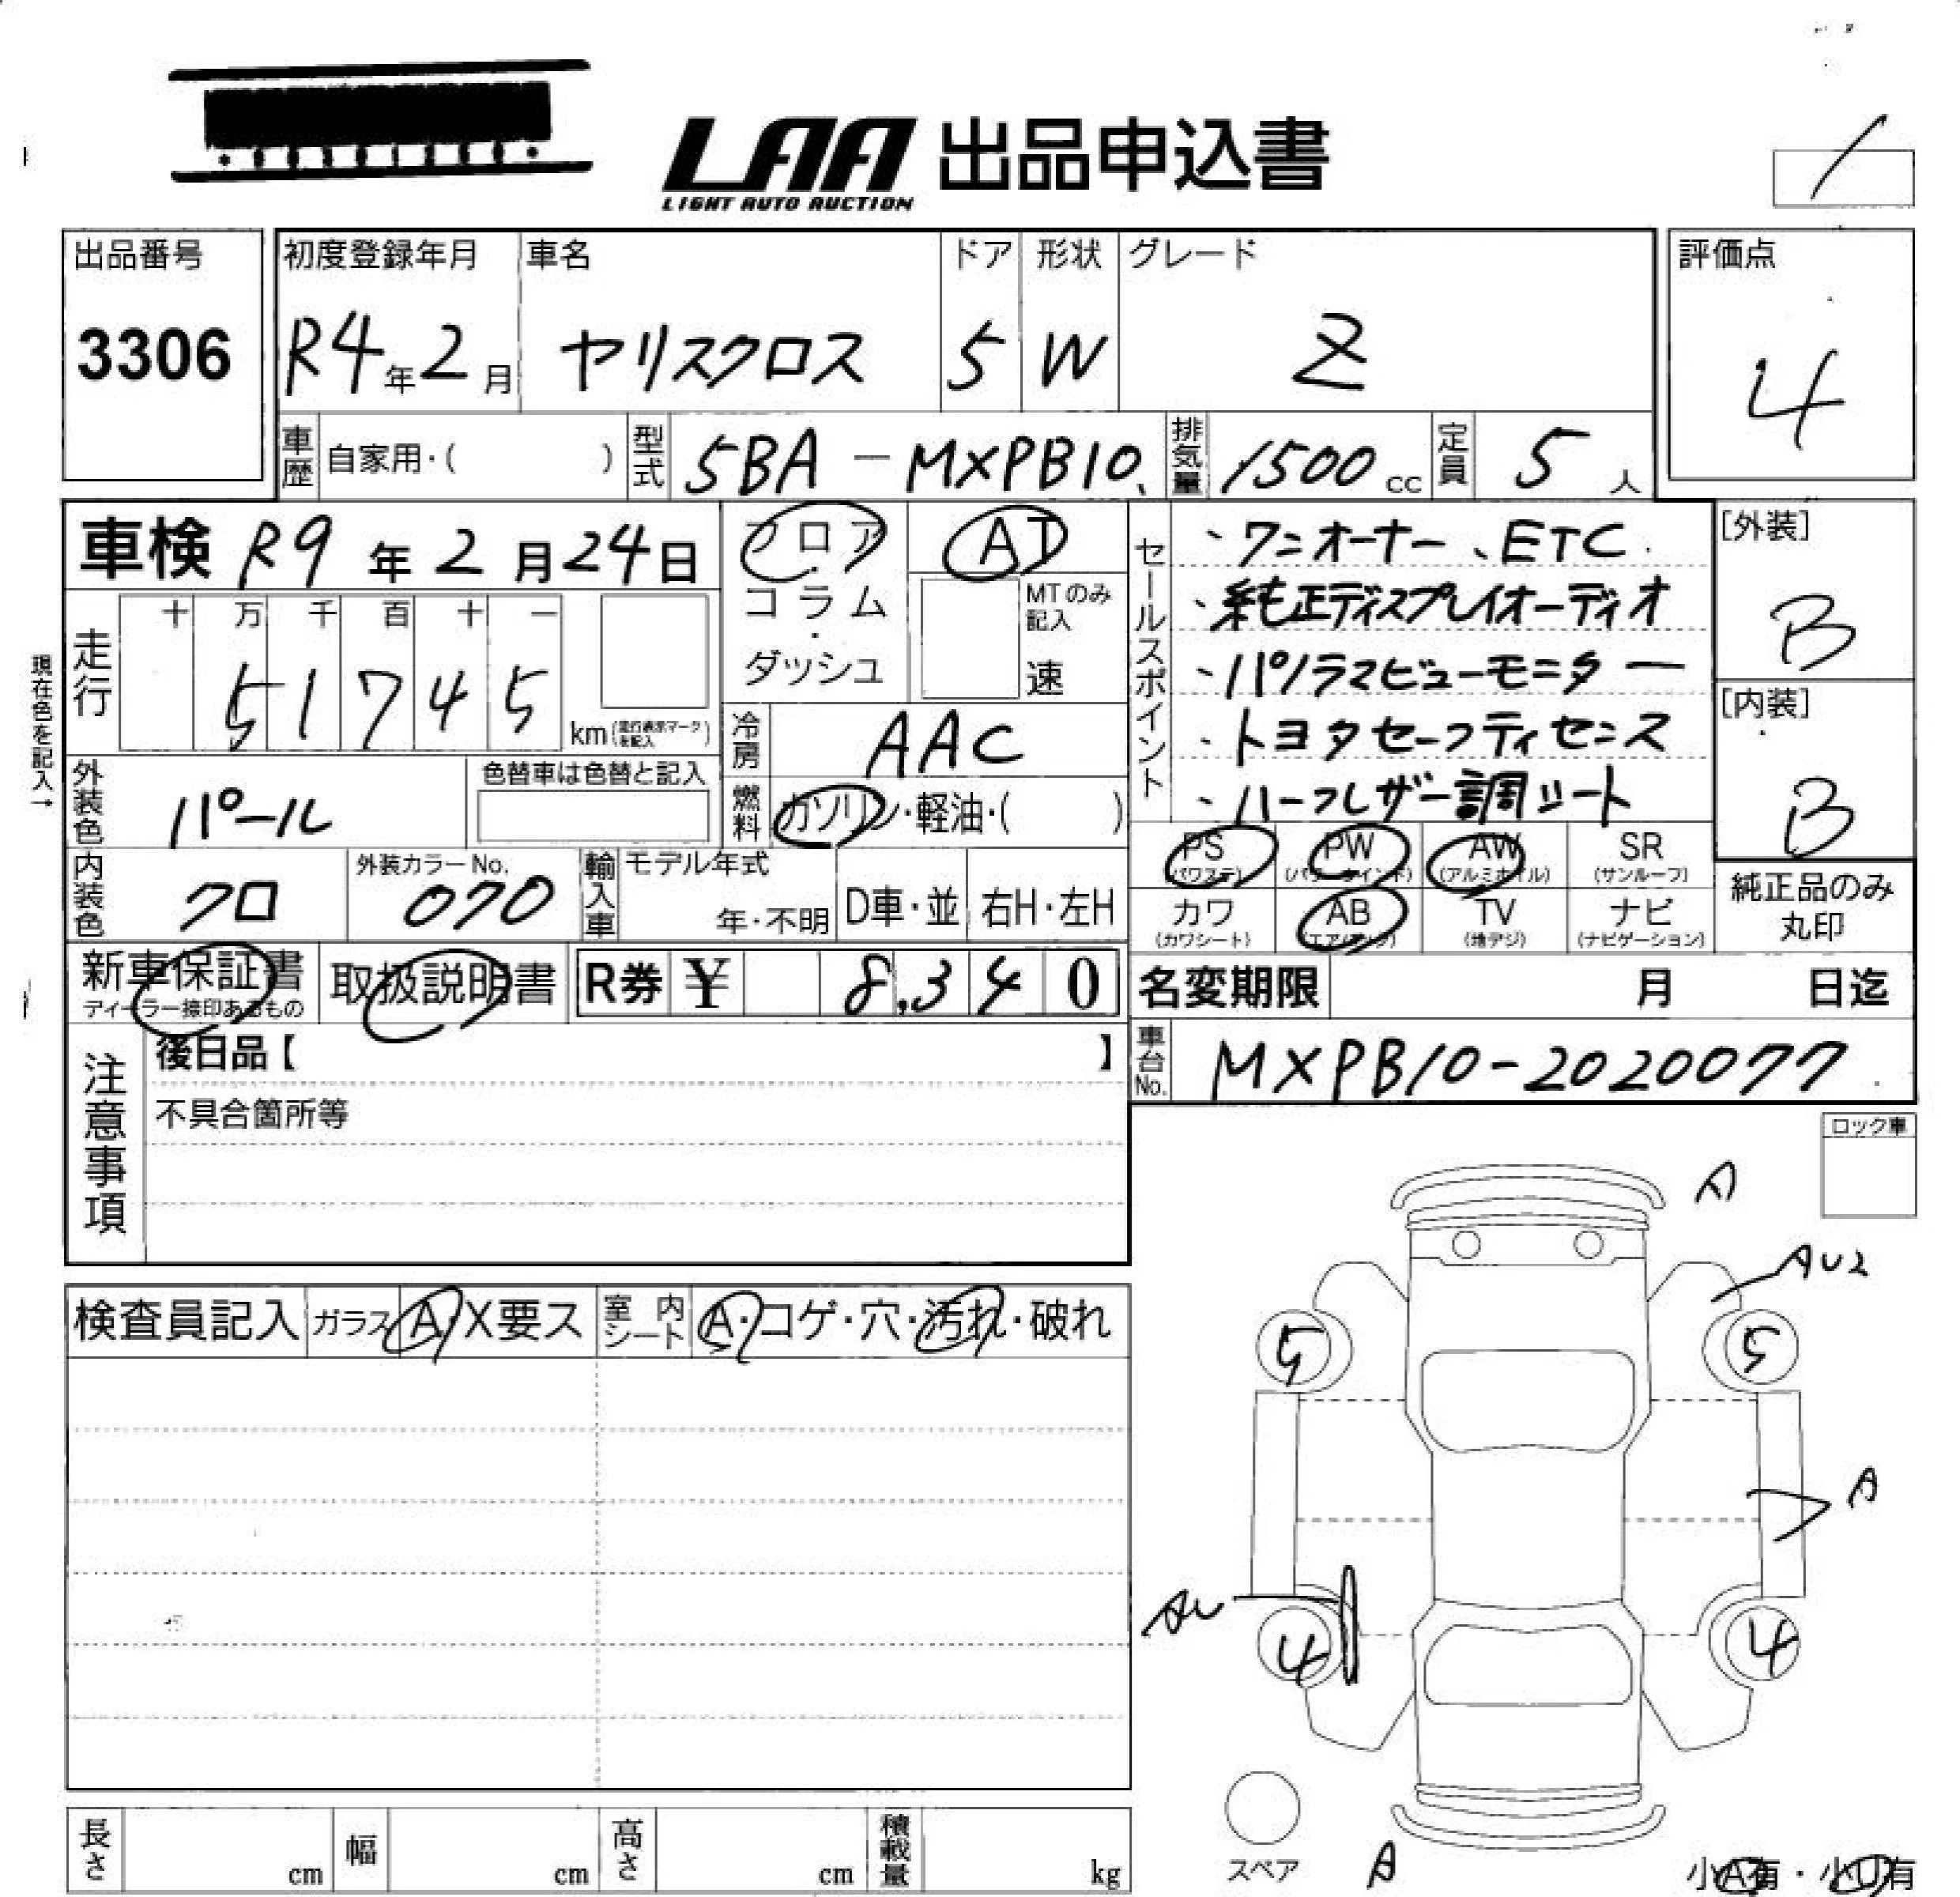 LAA 出品申込書
LIGHT AUTO AUCTION
出品番号
3306
初度登録年月
R4年2月
車名
ヤリスクロス
ドア
5
形状
W
グレード
Z
評価点
4
車歴 自家用・( )
型式 5BA-MXPB10
排気量 1500 cc
定員 5 人
車検 R9年2月24日
フロア
コラム
・
ダッシュ
AT
MTのみ
記入
速
セールスポイント
・ワンオーナー、ETC
・純正ディスプレイオーディオ
・パノラマビューモニター
・トヨタセーフティセンス
・ハーフレザー調シート
[外装]
B
[内装]
B
現在色を記入→
走行
十 万 千 百 十 一
5 1 7 4 5
km(走行表示マークを記入)
冷房 AAC
外装色 パール
色替車は色替と記入
燃料 ガソリン・軽油・( )
PS
(パワステ)
PW
(パワーウインド)
AW
(アルミホイル)
SR
(サンルーフ)
内装色 クロ
外装カラーNo.
070
輸入車
モデル年式
年・不明
D車・並
右H・左H
カワ
(カワシート)
AB
(エアバック)
TV
(地デジ)
ナビ
(ナビゲーション)
純正品のみ
丸印
新車保証書
ディーラー捺印あるもの
取扱説明書
R券 ¥ 8,340
名変期限 月 日迄
注意事項
後日品【 】
不具合箇所等
車台No. MXPB10-2020077
ロック車
A
AU2
5 5
A
AU
4 4
検査員記入
ガラス A・X要ス
室内シート A・コゲ・穴・汚れ・破れ
長さ cm
幅 cm
高さ cm
積載量 kg
スペア
A
小A有・小U有